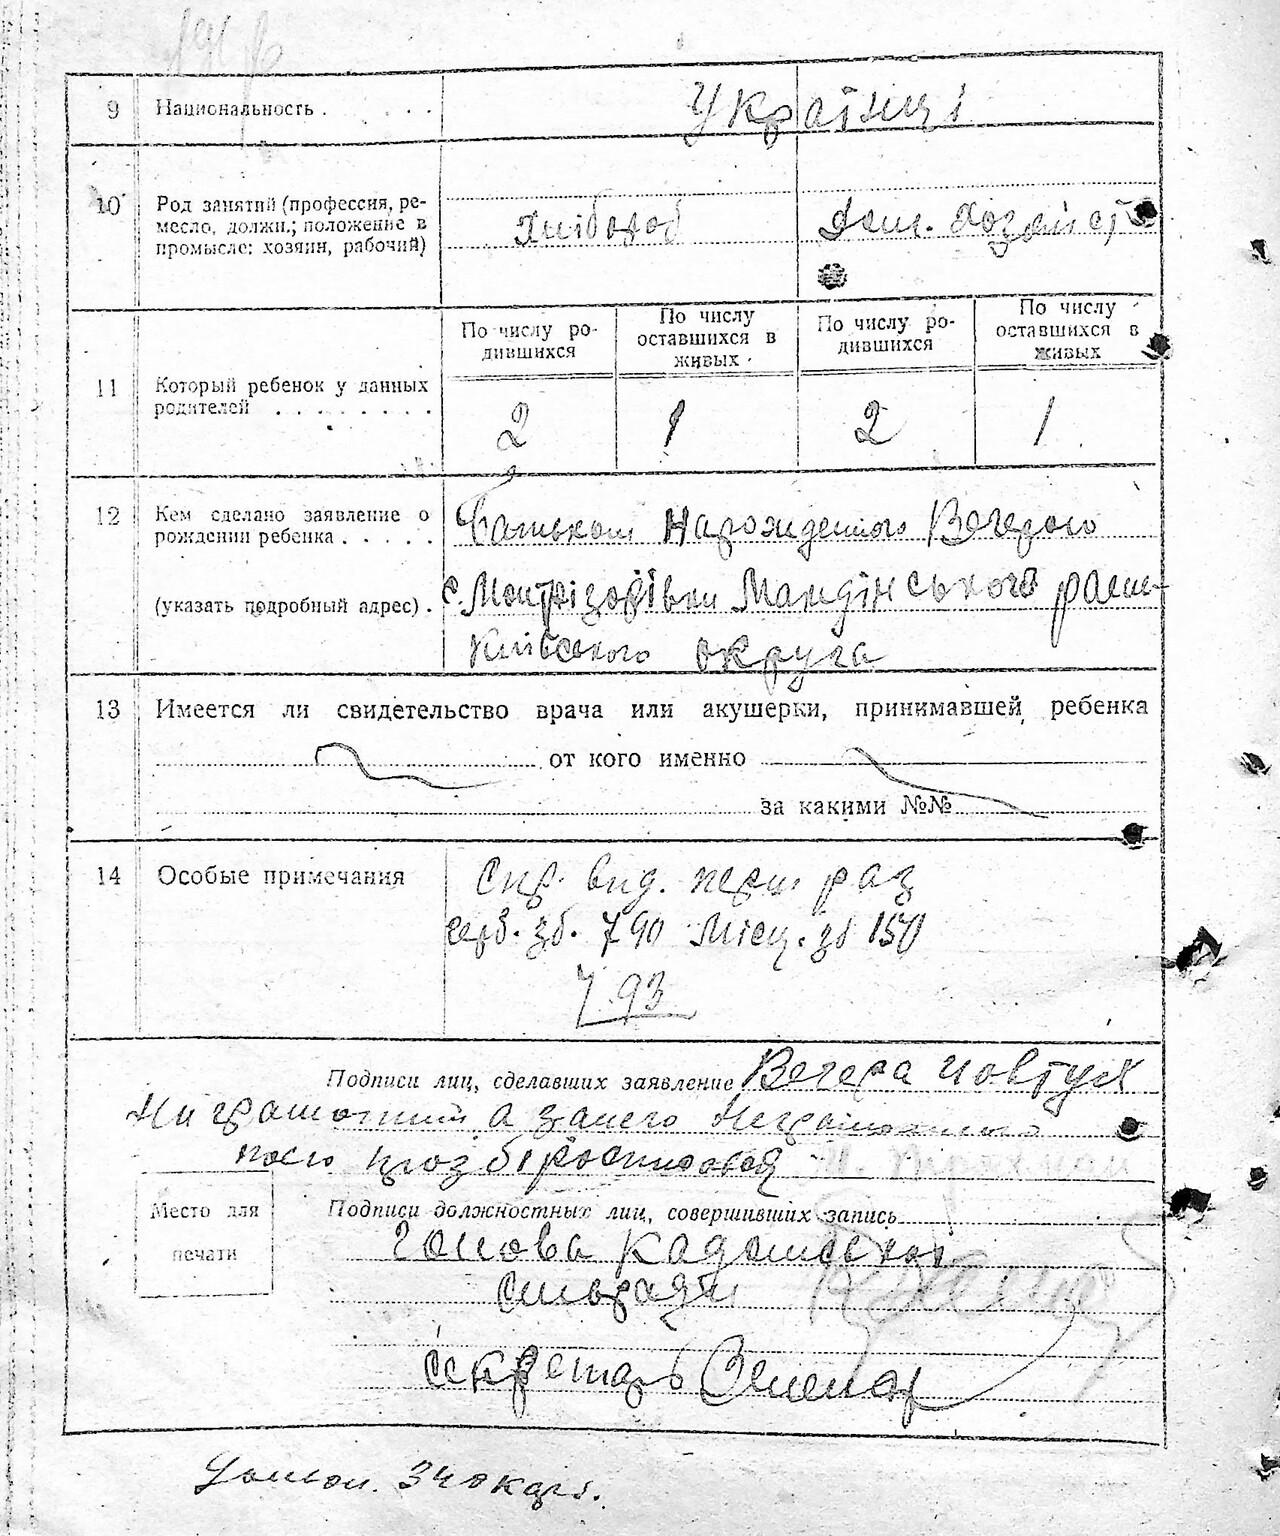 9 Национальность . . . . Українці
10 Род занятий (профессия, ре-
месло, должн.; положение в
промысле: хозяин, рабочий)
Хлібороб
Дом. Хозяйст
11 Который ребенок у данных
родителей . . . . . . . .
По числу ро-
дившихся
По числу
оставшихся в
живых
По числу ро-
дившихся
По числу
оставшихся в
живых
2 1 2 1
12 Кем сделано заявление о
рождении ребенка . . . . .
(указать подробный адрес) .
Батьком Нарожденного Вечерою
с. Мотрізодівки
Київского округа
13 Имеется ли свидетельство врача или акушерки, принимавшей ребенка
от кого именно
за какими №№
14 Особые примечания
Спр. вид. перш. раз
герб. зб. 790 Місц. зб 150
793
Подписи лиц, сделавших заявление Вечера Йовтух
Ни грамотний а за него
росписовся
Место для
печати
Подписи должностных лиц, совершивших запись
Голова
Сильради
Секретарь